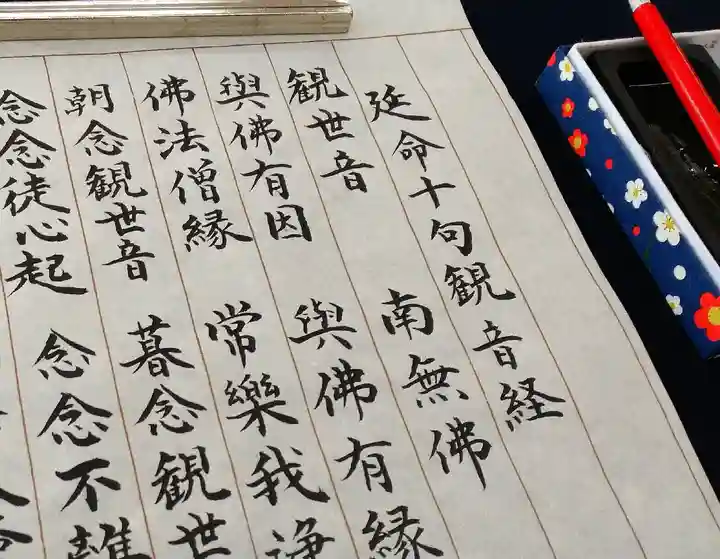 延命十句観音経
観世音 南無佛
與佛有因 與佛有縁
佛法僧縁 常樂我浄
朝念観世音 暮念観世
念念徒心起 念念不離